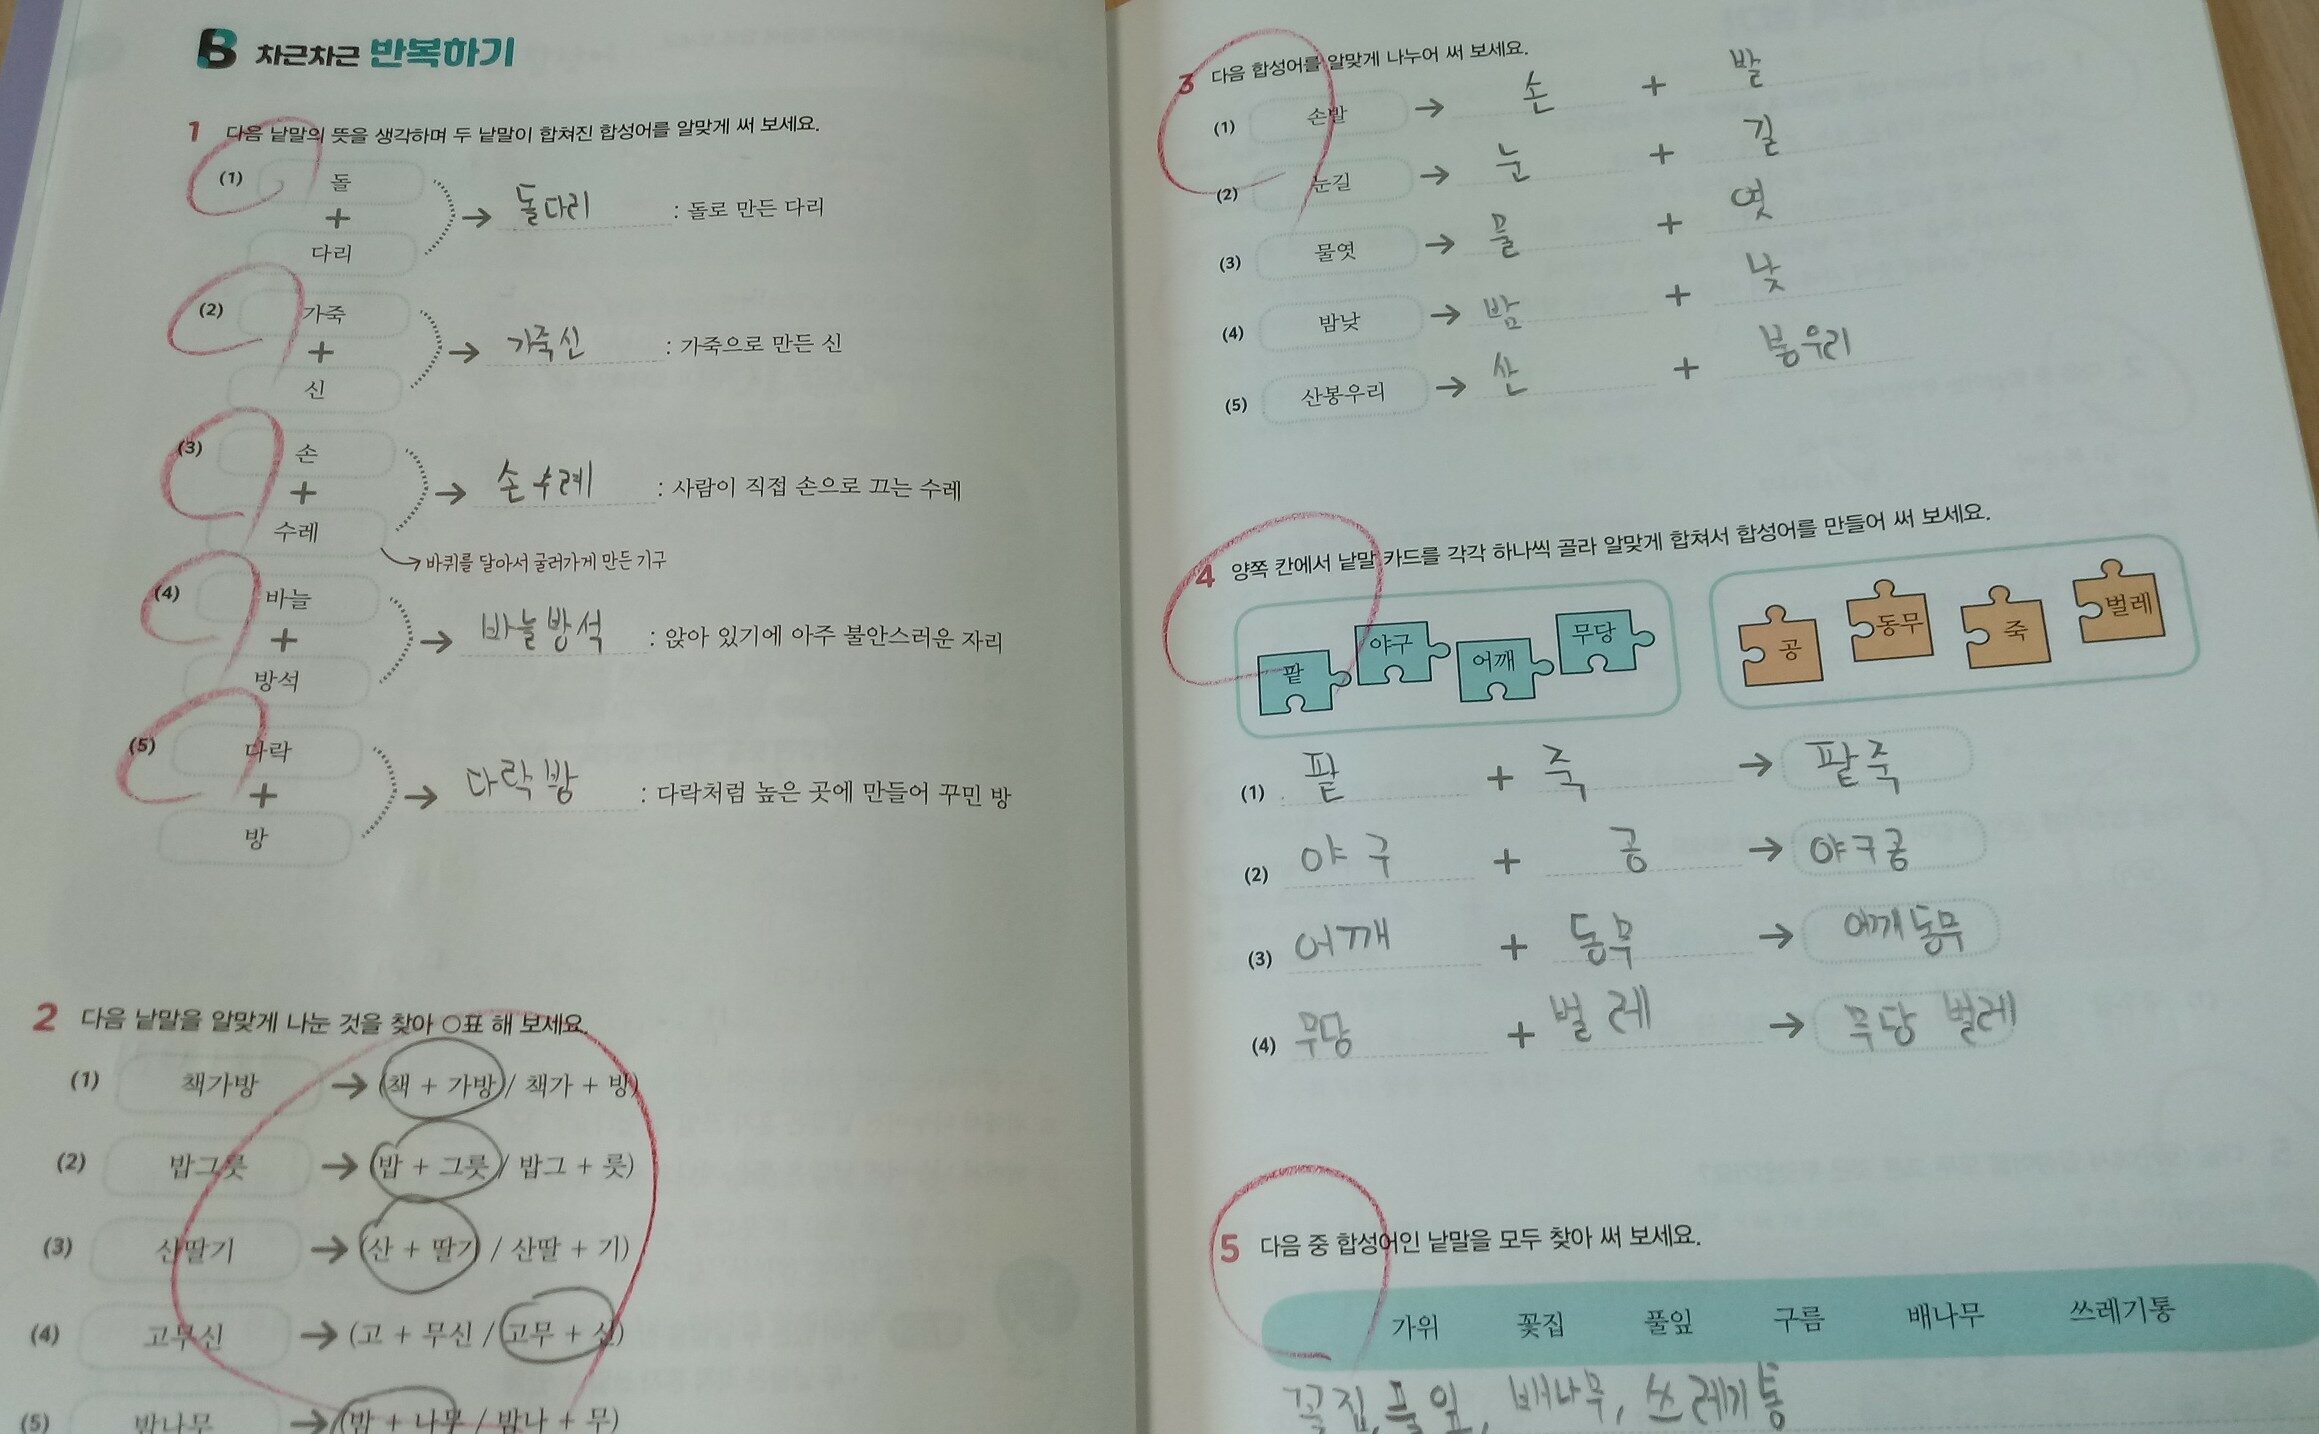 B 차근차근 반복하기
1 다음 낱말의 뜻을 생각하며 두 낱말이 합쳐진 합성어를 알맞게 써 보세요.
(1) 돌
+ → 돌다리 : 돌로 만든 다리
다리
(2) 가죽
+ → 가죽신 : 가죽으로 만든 신
신
(3) 손
+ → 손수레 : 사람이 직접 손으로 끄는 수레
수레
→ 바퀴를 달아서 굴러가게 만든 기구
(4) 바늘
+ → 바늘방석 : 앉아 있기에 아주 불안스러운 자리
방석
(5) 다락
+ → 다락방 : 다락처럼 높은 곳에 만들어 꾸민 방
방
2 다음 낱말을 알맞게 나눈 것을 찾아 ○표 해 보세요.
(1) 책가방 → (책 + 가방 / 책가 + 방)
(2) 밥그릇 → (밥 + 그릇 / 밥그 + 릇)
(3) 산딸기 → (산 + 딸기 / 산딸 + 기)
(4) 고무신 → (고 + 무신 / 고무 + 신)
(5) 밤나무 → (밤 + 나무 / 밤나 + 무)
3 다음 합성어를 알맞게 나누어 써 보세요.
(1) 손발 → 손 + 발
(2) 눈길 → 눈 + 길
(3) 물엿 → 물 + 엿
(4) 밤낮 → 밤 + 낮
(5) 산봉우리 → 산 + 봉우리
4 양쪽 칸에서 낱말 카드를 각각 하나씩 골라 알맞게 합쳐서 합성어를 만들어 써 보세요.
팥 야구 어깨 무당 공 동무 죽 벌레
(1) 팥 + 죽 → 팥죽
(2) 야구 + 공 → 야구공
(3) 어깨 + 동무 → 어깨동무
(4) 무당 + 벌레 → 무당 벌레
5 다음 중 합성어인 낱말을 모두 찾아 써 보세요.
가위 꽃집 풀잎 구름 배나무 쓰레기통
꽃집, 풀잎, 배나무, 쓰레기통